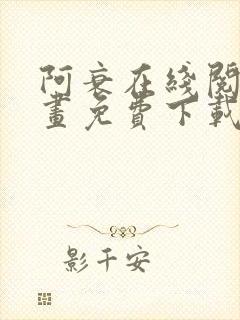 阿衰在线阅
画免费下载
影千安